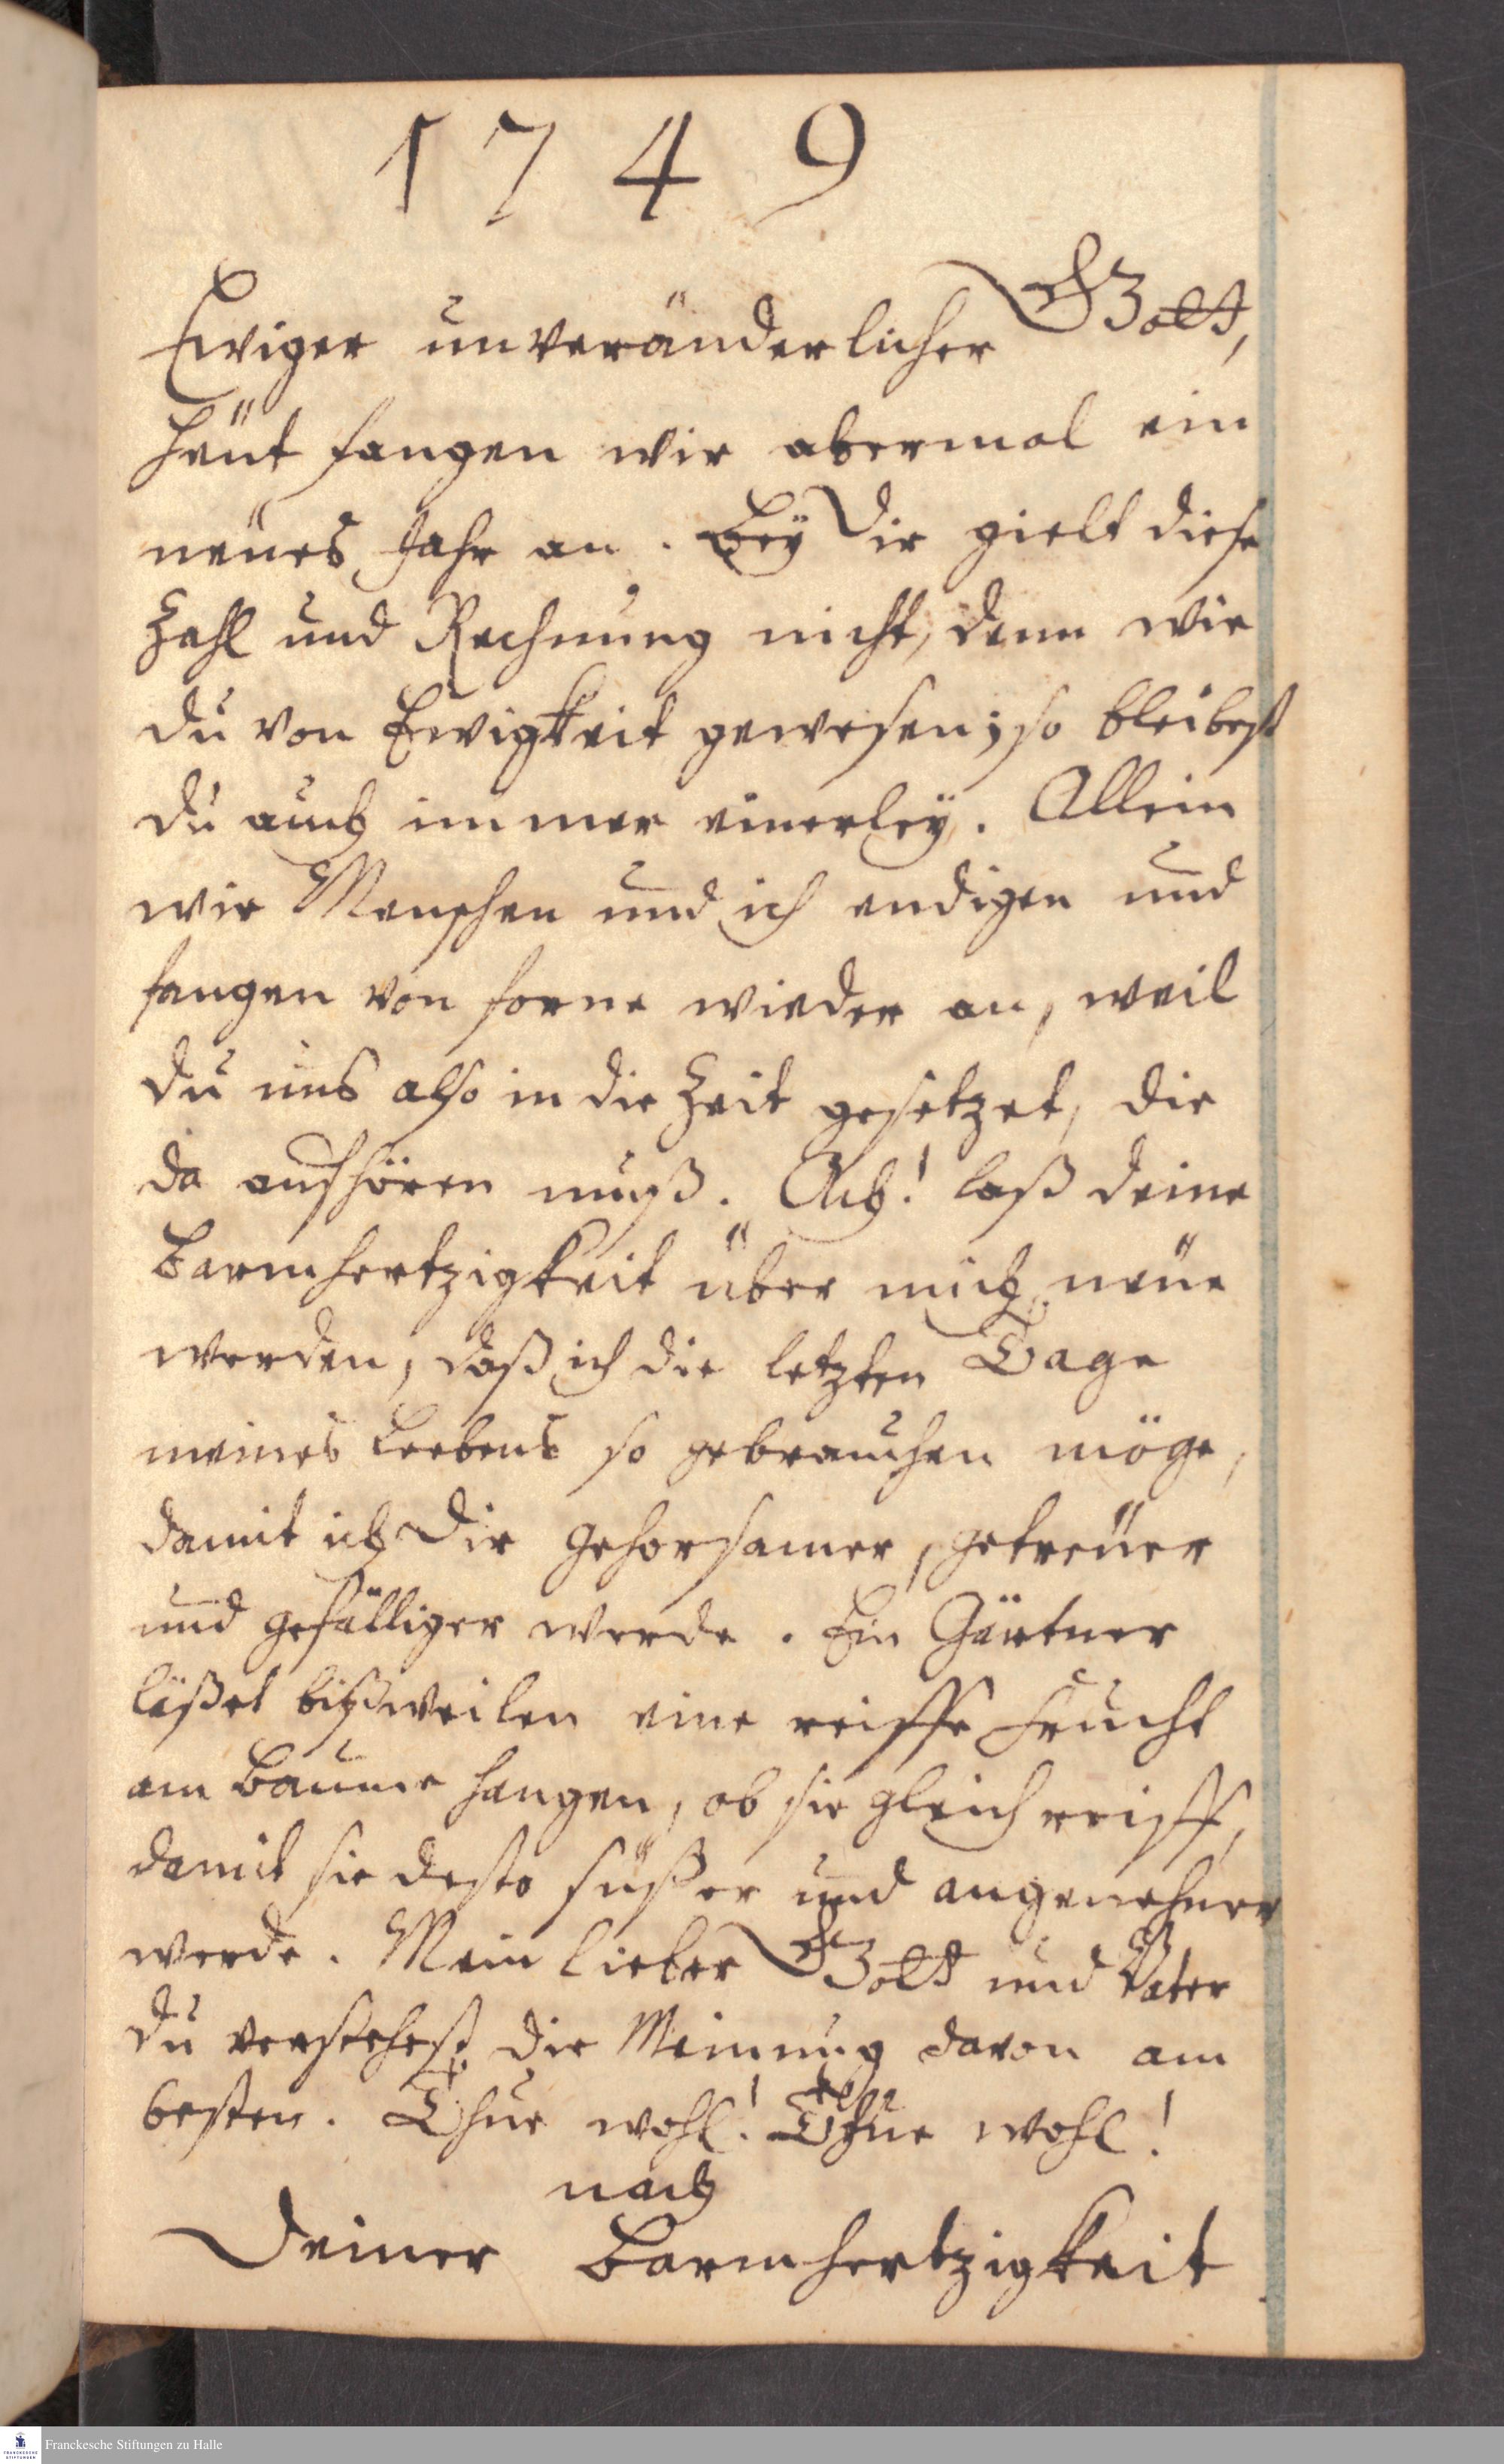 1749
Ewiger unveränderlicher GOtt,
heüt fangen wir abermal ein
neües Jahr an. Beÿ Dir gielt diese
Zahl und Rechnung nicht, denn wie
du von Ewigkeit gewesen; so bleibest
du auch immer einerleÿ. Allein
wir Menschen und ich endigen und
fangen von forne wieder an, weil
du uns also in die Zeit gesetzet, die
da aufhören muß. Ach! laß deine
Barmhertzigkeit über mich neüe
werden, daß ich die letzten Tage
meines Leebens so gebrauchen möge,
damit ich Dir gehorsamer, getreüer
und gefälliger werde. Ein Gärtner
läßet bißweilen eine reiffe Frucht
am Baume hangen, ob sie gleich reiff,
damit sie desto süßer und angenehmer
werde. Mein lieber GOtt und Vater
du verstehest die Meinung davon am
besten. Thue wohl! Thue wohl!
nach
Deiner Barmhertzigkeit
Franckesche Stiftungen zu Halle
FRANCKESCHE
STIFTUNGEN